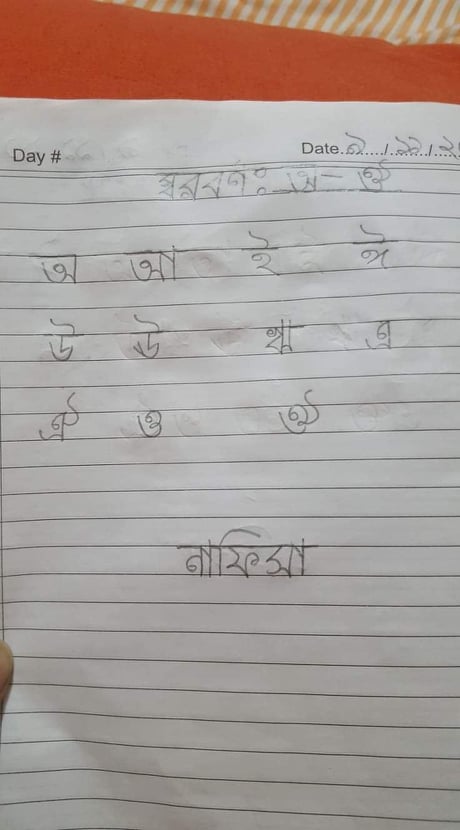 Day # Date.
স্বরবর্ণ: অ-ঔ
অ আ ই ঈ
উ ঊ ঋ এ
ঐ ও ঔ
নাফিসা